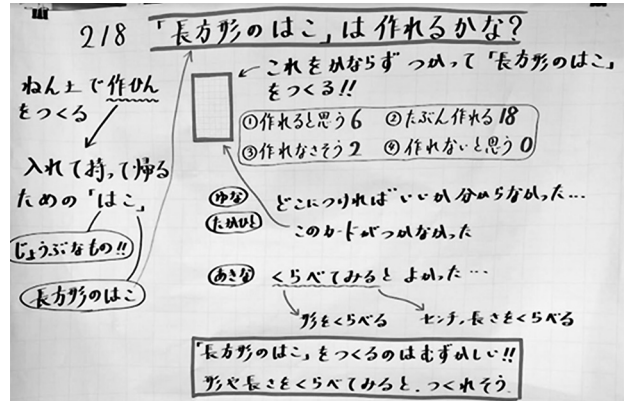 2/8 「長方形のはこ」は作れるかな?
ねん土で作ひん
をつくる
入れて持って帰る
ための「はこ」
じょうぶなもの!!
長方形のはこ
これをかならずつかって「長方形のはこ」
をつくる!!
①作れると思う6 ②たぶん作れる18
③作れなさそう2 ④作れないと思う0
ゆな
たかひと
どこにつければいいか分からなかった…
このカードがつかなかった
あきな くらべてみるとよかった…
形をくらべる センチ,長さをくらべる
「長方形のはこ」をつくるのはむずかしい!!
形や長さをくらべてみると、つくれそう